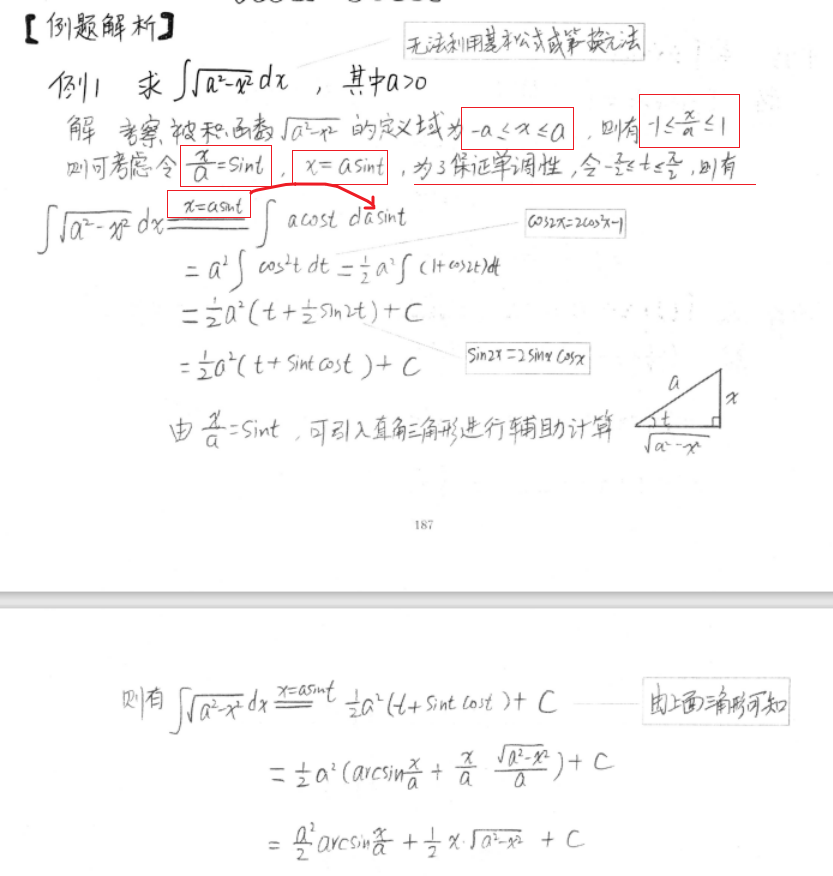 【例题解析】
无法利用基本公式或第一换元法
例1 求 ∫√(a²-x²) dx , 其中a>0
解 考察被积函数√(a²-x²) 的定义域为 -a≤x≤a , 则有 -1≤x/a≤1
则可考虑令 x/a=sint , x=asint , 为了保证单调性,令-π/2≤t≤π/2,则有
∫√(a²-x²) dx x=asint ∫ acost dasint
cos2x=2cos²x-1
= a²∫ cos²t dt = 1/2 a²∫ (1+cos2t)dt
= 1/2 a²(t+1/2 sin2t)+C
= 1/2 a²(t+sintcost)+C
sin2x=2sinx cosx
由 x/a=sint ,可引入直角三角形进行辅助计算
a
x
t
√(a²-x²)
187
则有 ∫√(a²-x²) dx x=asint = 1/2 a²(t+sint cost)+C
由上面三角形可知
= 1/2 a²(arcsin x/a + x/a √(a²-x²)/a)+C
= a²/2 arcsin x/a + 1/2 x·√(a²-x²) + C